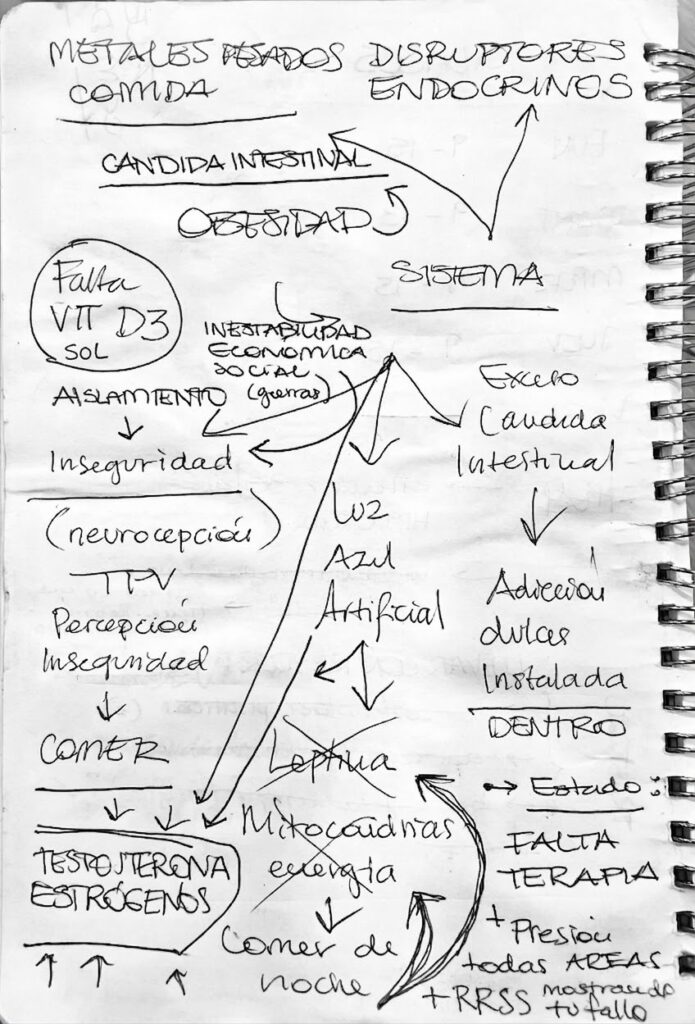 METALES PESADOS DISRUPTORES
COMIDA ENDOCRINOS
CANDIDA INTESTINAL
OBESIDAD
SISTEMA
Falta
VIT D3
SOL
INESTABILIDAD
ECONOMICA
SOCIAL
(guerras)
AISLAMIENTO
Inseguridad
(neurocepción)
TPV
Percepción
Inseguridad
COMER
TESTOSTERONA
ESTRÓGENOS
Luz
Azul
Artificial
Leptina
Mitocondrias
energia
Comer de
noche
Exceso
Candida
Intestinal
Adicción
dulces
Instalada
DENTRO
Estado:
FALTA
TERAPIA
+ Presión
todas AREAS
+ RRSS mostrando
tu fallo